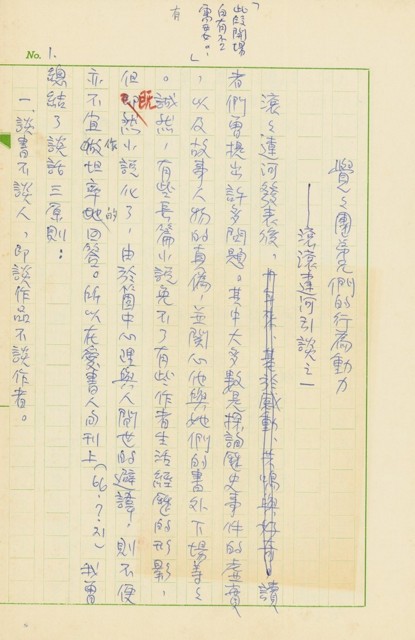 「此段開場
白有不
需要。」
有
No. 1.
覺々團弟兄們的行為動力
——滾滾遼河引談之一
滾々遼河發表後，讀
者們曾提出許多問題。其中大多數是探詢歷史事件的虛實
，以及故事人物的真偽，並關心他與她們的書外下場等々
。誠然，有些長篇小說免不了有些作者生活經歷的形影，
但既然小說化了，由於箇中心理與人間世的避諱，則不便
亦不宜做坦率的回答。所以在愛書人旬刊上（66.7.21）我曾
總結了談話三原則：
一、談書不談人，即談作品不談作者。